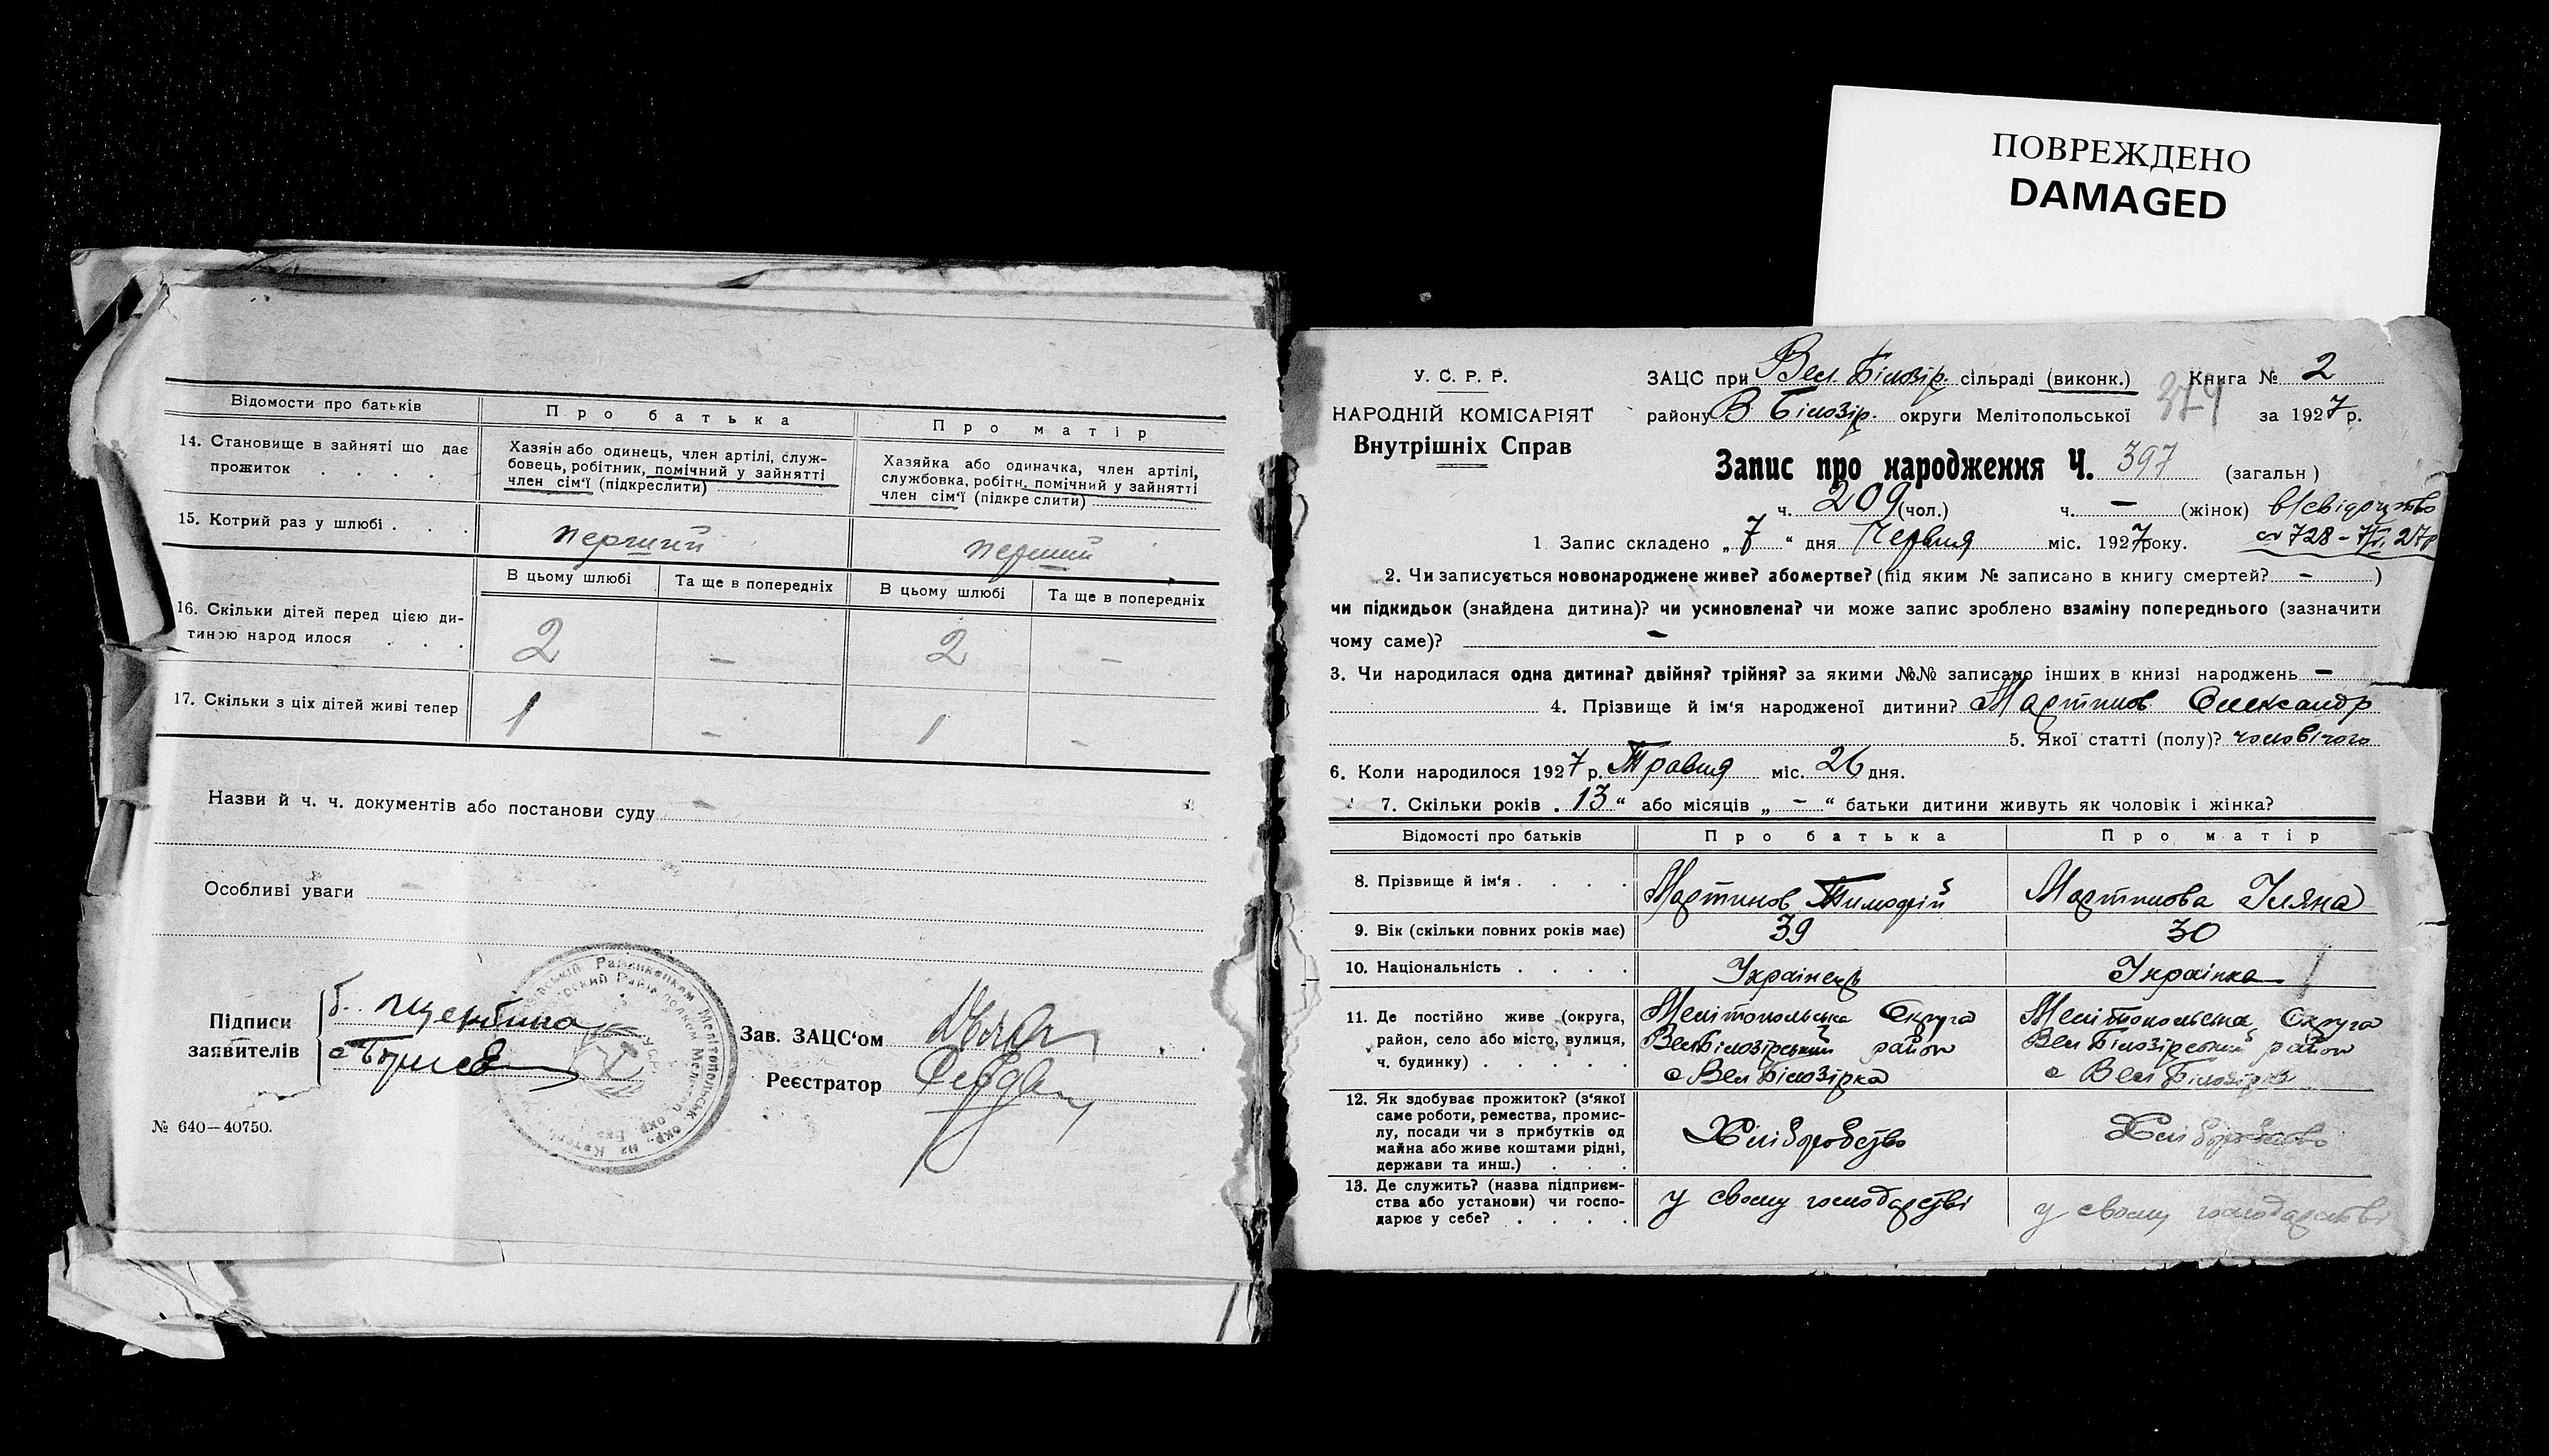 ПОВРЕЖДЕНО
DAMAGED
Відомости про батьків
Про батька
Про матір
14. Становище в зайняті що дає прожиток . . . .
Хазяїн або одинець, член артілі, служ-
бовець, робітник, помічний у зайнятті
член сім'ї (підкреслити)
Хазяйка або одиначка, член артілі,
службовка, робітн. помічний у зайнятті
член сім'ї (підкре слити)
15. Котрий раз у шлюбі . . .
перший
перший
В цьому шлюбі
Та ще в попередніх
В цьому шлюбі
Та ще в попередніх
16. Скільки дітей перед цією ди-
тиною народ илося . . .
2
–
2
–
17. Скільки з ціх дітей живі тепер
1
–
1
–
Назви й ч. ч. документів або постанови суду –
Особливі уваги –
Підписи
заявителів
Зав. ЗАЦС'ом
Реєстратор
№ 640—40750.
У. С. Р. Р.
НАРОДНІЙ КОМІСАРІЯТ
Внутрішніх Справ
ЗАЦС при Вел. Білозір. сільраді (виконк.) Книга № 2
району В Білозір. округи Мелітопольської за 1927 р.
Запис про народження Ч. 397 (загальн)
ч. 209 (чол.) ч. – (жінок) в/свідоцтво
1 Запис складено „7“ дня Червня міс. 1927року. 728 – 7/VI 27р
2. Чи записується новонароджене живе? або мертве? (під яким № записано в книгу смертей? – )
чи підкидьок (знайдена дитина)? чи усиновлена? чи може запис зроблено взаміну попереднього (зазначити
чому саме)? –
3. Чи народилася одна дитина? двійня? трійня? за якими №№ записано інших в книзі народжень –
4. Прізвище й ім'я народженої дитини? Мартинов Олександр
5. Якої статті (полу)? чоловічого
6. Коли народилося 1927 р. Травня міс. 26 дня.
7. Скільки років „ 13 “ або місяців „ – “ батьки дитини живуть як чоловік і жінка?
Відомості про батьків
Про батька
Про матір
8. Прізвище й ім'я . . . .
Мартинов Тимофій
Мартинова Уляна
9. Вік (скільки повних років має)
39
30
10. Національність . . . .
Українець
Українка
11. Де постійно живе (округа,
район, село або місто, вулиця,
ч. будинку) . . . . .
Мелітопольська Округа
Вел Білозірський район
с Вел Білозірка
Мелітопольська Округа
Вел Білозірський район
с Вел Білозірка
12. Як здобуває прожиток? (з'якої
саме роботи, ремества, промис-
лу, посади чи з прибутків од
майна або живе коштами рідні,
держави та инш.) . . .
Хліборобство
Хліборобство
13. Де служить? (назва підприєм-
ства або установи) чи госпо-
дарює у себе? . . . .
у своєму господарстві
у своєму господарстві